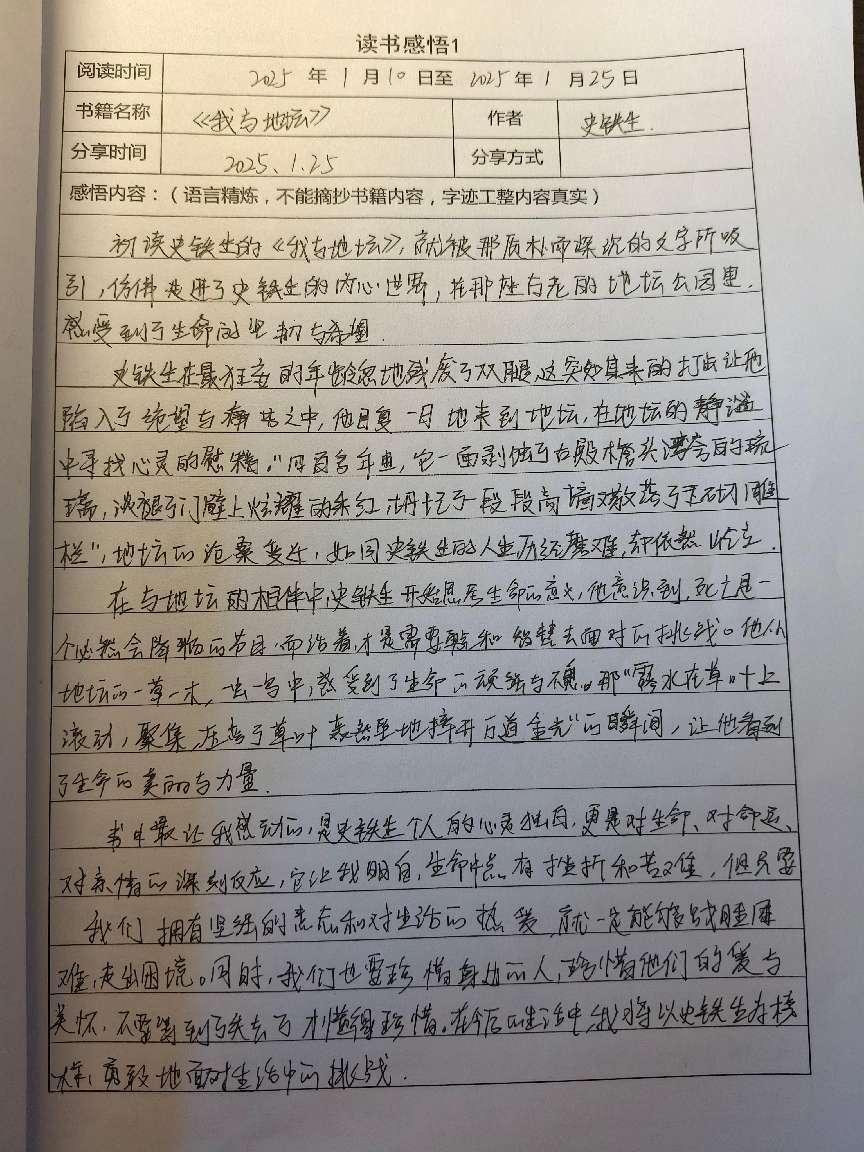 读书感悟1
阅读时间 2025 年 1 月 10 日至 2025 年 1 月 25 日
书籍名称 《我与地坛》 作者 史铁生.
分享时间 2025.1.25 分享方式
感悟内容：（语言精炼，不能摘抄书籍内容，字迹工整内容真实）
初读史铁生的《我与地坛》，就被那质朴而深沉的文字所吸
引，仿佛走进了史铁生的内心世界，在那座古老的地坛公园里.
感受到了生命的坚韧与希望.
史铁生在最狂妄的年龄忽地残废了双腿,这突如其来的打击让他
陷入了绝望与痛苦之中，他日复一日地来到地坛，在地坛的静谧
中寻找心灵的慰藉。"四百多年里，它一面剥蚀了古殿檐头浮夸的琉
璃，淡褪了门壁上炫耀的朱红,坍圮了段段高墙又散落了玉砌雕
栏"，地坛的沧桑变迁，如同史铁生的人生历经磨难，却依然屹立.
在与地坛的相伴中,史铁生开始思考生命的意义，他意识到，死亡是一
个必然会降临的节日，而活着,才是需要和智慧去面对的挑战。他从
地坛的一草一木，一虫一鸟中，感受到了生命的顽强与不屈。那"露水在草叶上
滚动，聚集，压弯了草叶轰然坠地摔开万道金光"的瞬间，让他看到
了生命的美丽与力量.
书中最让我感动的，是史铁生个人的心灵独白，更是对生命、对命运、
对亲情的深刻反应，它让我明白，生命中总有挫折和苦难，但只要
我们拥有坚强的意志和对生活的热爱，就一定能够战胜困
难，走出困境。同时，我们也要珍惜身边的人，珍惜他们的爱与
关怀，不要等到了失去了才懂得珍惜。在今后的生活中,我将以史铁生为榜
样，勇敢地面对生活中的挑战.